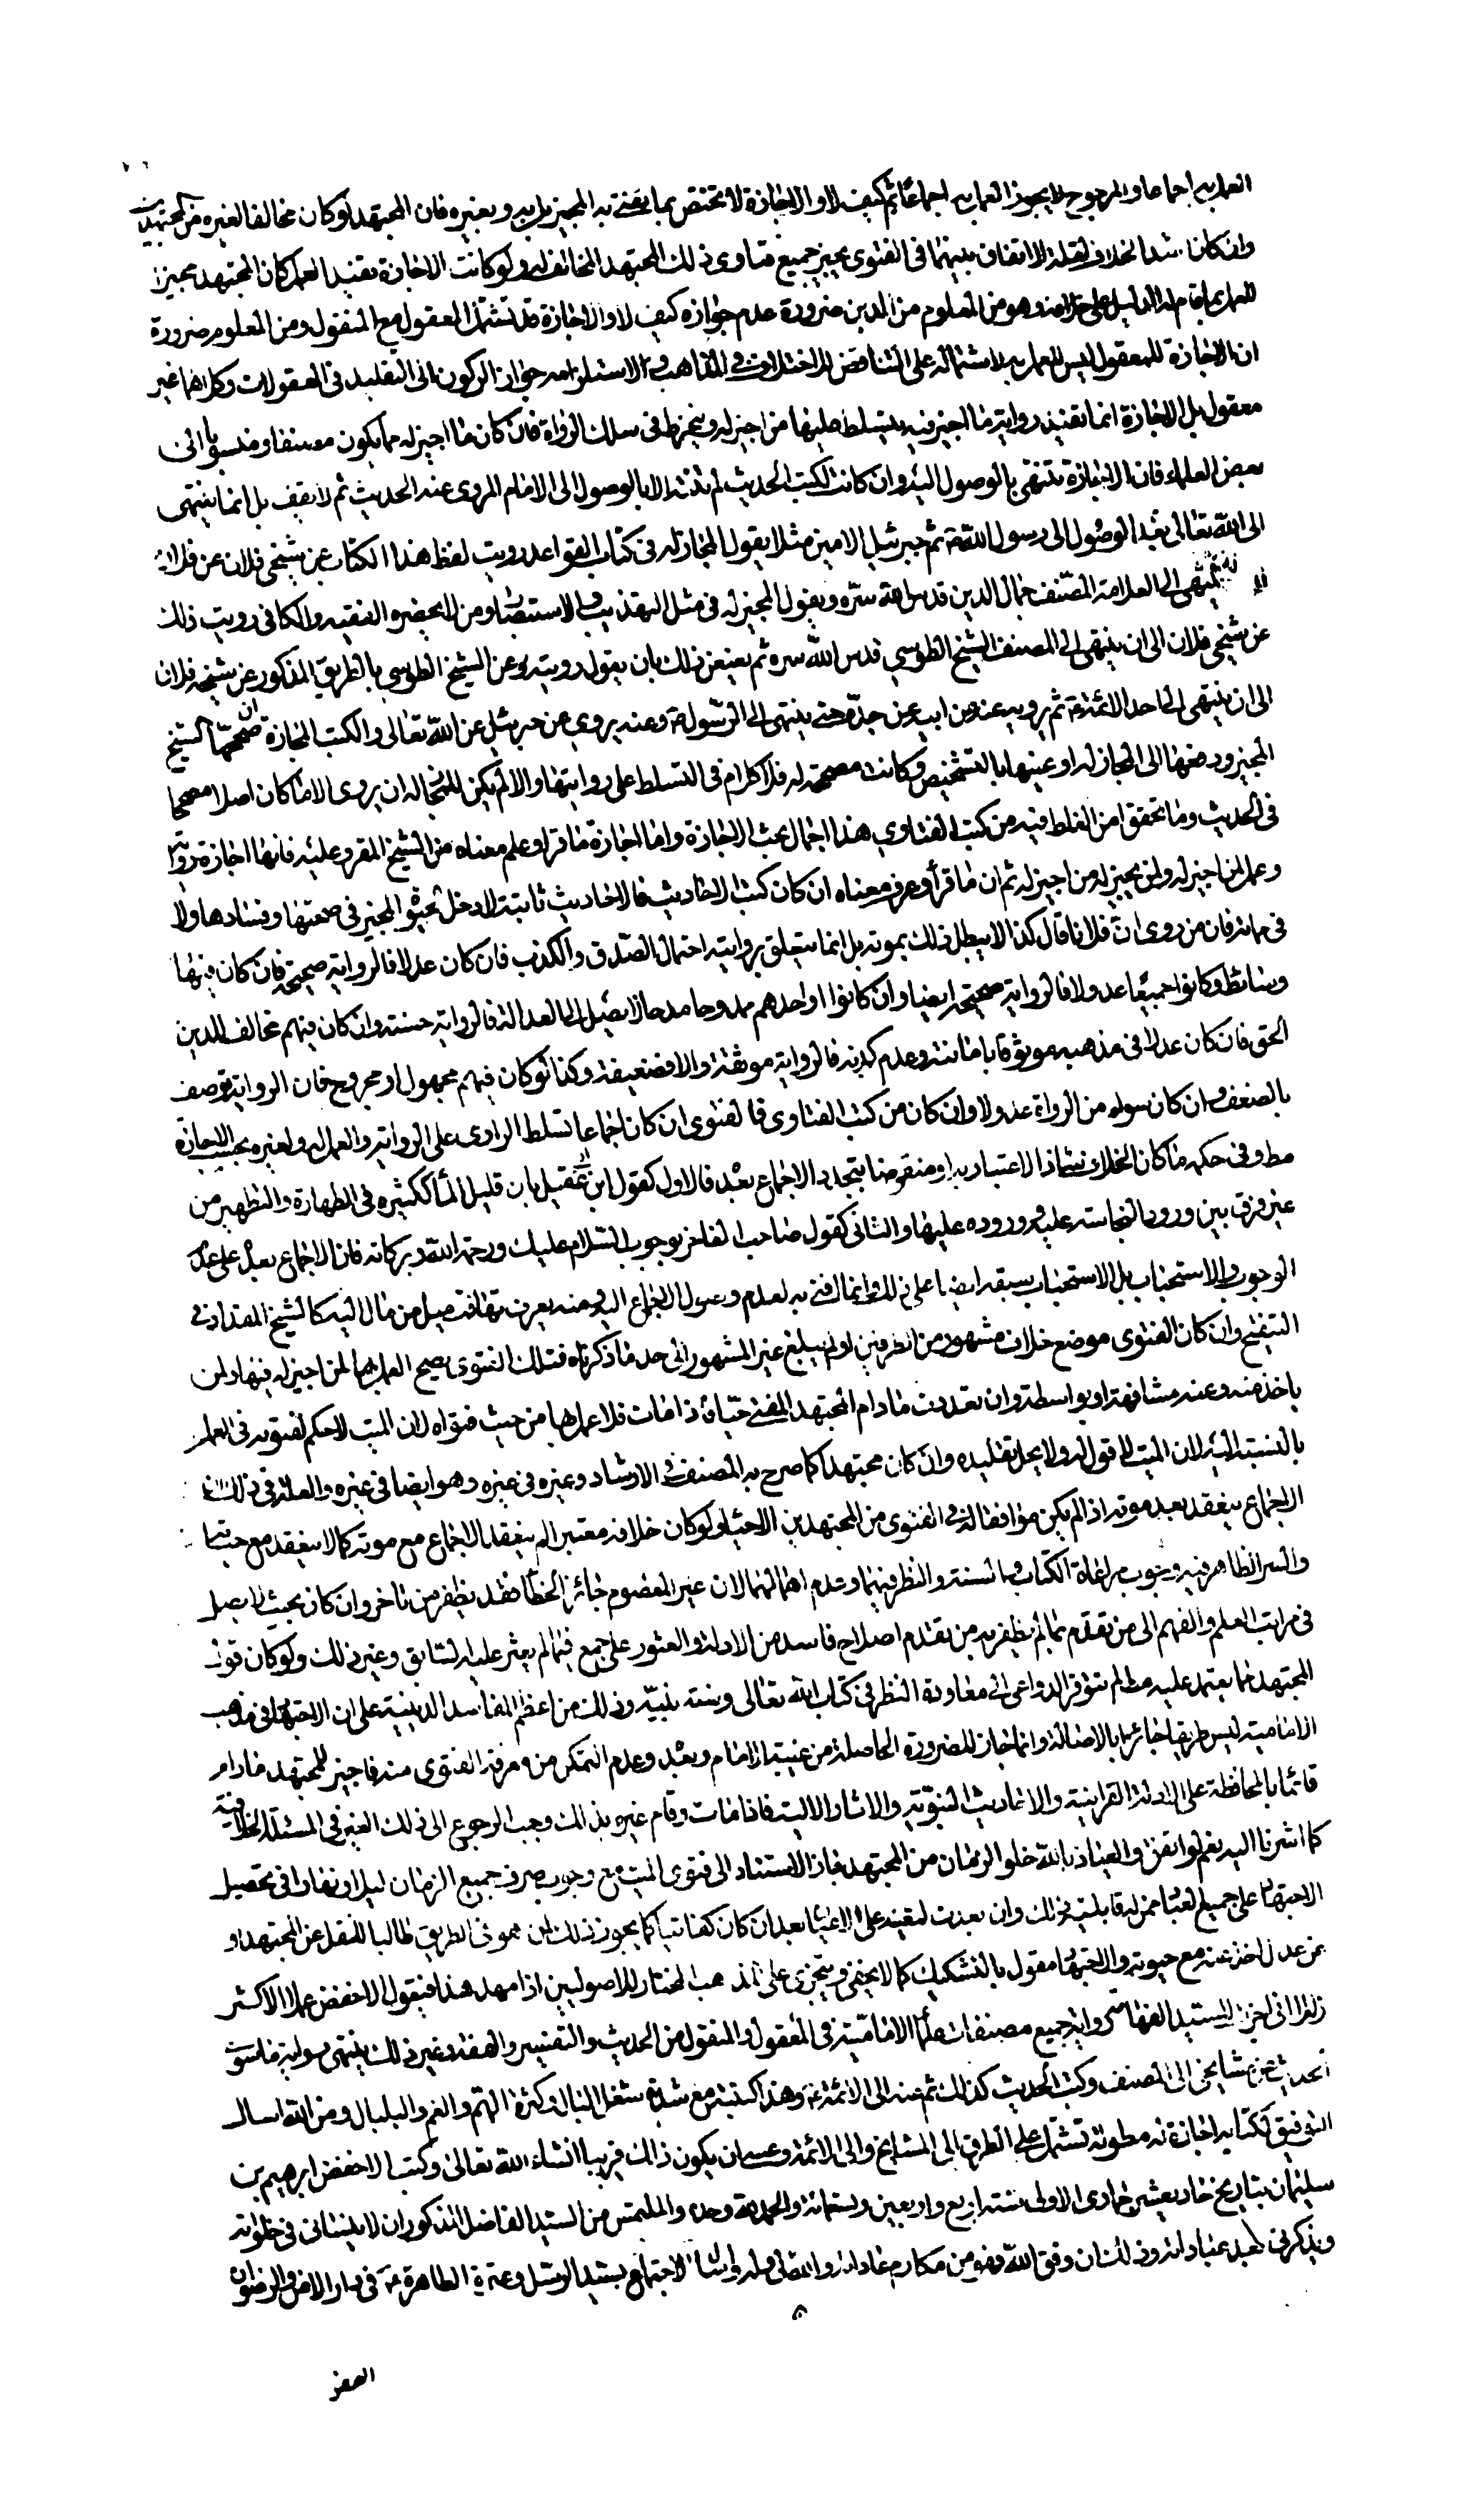 العمل به اجماعا والمرجوح لا يجوز العمل به اجماعا ثم كيف لا والاجازة لا تختص بما يفتى به المجيز بل به وبغيره فان المجتهد لو كان مخالفا لغيره من المجتهدين
وان كان اشد الخلاف لقلة الاتفاق بينهما فى الفتوى يجيز جميع فتاوى ذلك المجتهد المخالف له ولو كانت الاجازة تفيد العمل كان المجتهد مجيزا
للعمل بما قام له الدليل على خلافه وهو من المعلوم من الدين ضرورة عدم جوازه كيف لا والاجازة قد تشتمل المعقول مع المنقول ومن المعلوم ضرورة
ان الاجازة للمعقول ليس للعمل به لاشتماله على التناقض للاختلاف فى المذاهب ولاستلزامه جواز الركون الى التقليد فى العقولات وكلاهما غير
معقول بل الاجازة انما تفيد رواية ما اجيز فيه ليتسلط عليها من اجيز له وينخرط فى سلك الرواة فان كان ما اجيز له مما يكون مصنفا ومنسوبا الى
بعض العلماء فان الاجازة تنتهى بالوصول اليه وان كانت لكتب الحديث لم تنته الا بالوصول الى الامام المروى عنه الحديث ثم لا يقف بل انما ينتهى
الى الله تعالى بعد الوصول الى رسول الله ص ثم جبرئيل الامين مثلا يقول المجاز له فى كتاب القواعد رويت لفظ هذا الكتاب عن شيخى فلان عن فلان
ينتهى الى العلامة المصنف جمال الدين قدس الله سره ويقول المجيز له فى مثل التهذيب والاستبصار ومن لا يحضره الفقيه والكافى رويت ذلك
عن شيخى فلان الى ان ينتهى الى المصنف الشيخ الطوسي قدس الله سره ثم يعنعن ذلك بان يقول رويته عن الشيخ الطوسى بالطريق المذكور عن شيخه فلان
الى ان ينتهى الى احد الائمة ثم يرويه عنه عن ابيه عن جده حتى ينتهى الى الرسول ص وعنه يروى عن جبرئيل عن الله تعالى والكتب المجازة ان صححها الشيخ
المجيز ودفعها الى المجاز له او عينها بالتشخيص وكانت مصححة له فلا كلام فى التسلط على روايتها والا لم يكن للمجاز له ان يروى الا ما كان اصلا مصححا
فى الحديث وما تحقق امن الغلط فيه من كتب الفتاوى هذا اجمال بحث الاجازة واما اجازة ما قرا وعلم معناه من الشيخ المقرو عليه فانها اجازة رواية
وعمل لمن اجيز له ولمن يجيز له من اجيز له ثم ان ما قرأ وعرف معناه ان كان كتب الاحاديث فالاحاديث ثابتة لا دخل لحيوة المجيز فى صحتها وفسادها ولا
فى مماته فان من روى ان فلانا قال كذا لا يبطل ذلك بموته بل انما يتعلق بروايته احتمال الصدق والكذب فان كان عدلا فالرواية صحيحة فان كان بينهما
وسائط وكانوا جميعا عدولا فالرواية صحيحة ايضا وان كانوا او احدهم ممدوحا مدحا لا يصل الى العدالة فالرواية حسنة وان كان فيهم مخالف للدين
الحق فان كان عدلا فى مذهبه موثوقا بامانته وعدم كذبه فالرواية موثقة والا فضعيفة وكذا لو كان فيهم مجهول او مجروح فان الرواية توصف
بالضعف وان كان سواه من الرواة عدولا وان كان من كتب الفتاوى فالفتوى ان كان اجماعا تسلط الراوى على الرواية والعمل له ولغيره بحسب الاجازة
مط وفى حكمه ما كان الخلاف شاذا لا اعتبار به او منقرضا بتجدد الاجماع بعد فالاول كقول ابن ابى عقيل بان قليل الماء ككثيره فى الطهارة والتطهير من
غير فرق بين ورود النجاسة عليه ووروده عليها والثانى كقول صاحب الفاخر بوجوب السلام عليك ورحمة الله وبركاته فان الاجماع بعد على عدم
الوجوب والاستحباب بل الاستحباب سبقه ايضا على ذلك وانما افتى به لعدم وصول الاجماع اليه ومنه يعرف تهافت ميل من مال اليه كالشيخ المقداد فى
التنقيح وان كان الفتوى موضع خلاف مشهور من الطرفين او لم يبلغ غير المشهور الى حد ما ذكرناه فتلك الفتوى يصح العمل بها لمن اجيز له فيها ولمن
ياخذ منه وعنه مشافهة او بواسطة وان تعددت ما دام المجتهد المفتى حيا فاذا مات فلا عمل بها من حيث فتواه لان الميت لا حكم لفتوته فى العمل
بالنسبة اليه لان الميت لا قول له ولا يحل تقليده وان كان مجتهدا كما صرح به المصنف فى الارشاد وغيره فى غيره وهو ايضا فى غيره والعلة فى ذلك ان
الاجماع ينعقد بعد موته اذا لم يكن موافقا له فى الفتوى من المجتهدين الاحياء ولو كان خلافه معتبرا لم ينعقد الاجماع مع موته كما لا ينعقد مع حياته
والسر الظاهر فيه وجوب مراعاة الكتاب والسنة والنظر فيهما وعدم اهمالهما لان غير المعصوم جائز الخطأ فقد يظفر من تاخر وان كان بحيث لا يصل
فى مراتب العلم والفهم الى من تقدم بما لم يظفر به من تقدم اصلاح فاسد من الادلة والعثور على جمع فيما لم يعثر عليه السابق وغير ذلك ولو كان قول
المجتهد مما يعتمد عليه مط لم تتوفر الدواعى الى معاودة النظر فى كتاب الله تعالى وسنة نبيه وذلك من اعظم المفاسد الدينية على ان الاجتهاد فى مذهب
الامامية ليس طريقا جائزا بالاصالة وانما جاز للضرورة الحاصلة من غيبة الامام وبعده وعدم التمكن من معرفة الفتوى منه فاجيز للمجتهد ما دام
قائما بالمحافظة على الادلة القرانية والاحاديث النبوية والاثار الالية فاذا مات وقام غيره بذلك وجب الرجوع الى ذلك الغير فى المسئلة الخلافية
كما اشرنا اليه نعم لو اتفق والعياذ بالله خلو الزمان من المجتهد جاز الاستناد الى فتوى الميت مع وجوب صرف جميع الزمان ليلا ونهارا فى تحصيل
الاجتهاد على جميع العباد ممن له قابلية ذلك وان بعدت لتعينه على الاعيان بعد ان كان كفائيا كما يجوز ذلك لمن هو فى الطريق طالبا للنقل عن المجتهد او
عن عدل اخذ عنه مع حيوته والاجتهاد مقول بالتشكيك كما لا يخفى ويتجزى على المذهب المختار للاصوليين اذا مهد هذا فيقول الاخفض عملا الاكثر
زللا انى اجزت للسيد رواية جميع مصنفات علماء الامامية فى المعقول والمنقول من الحديث والتفسير والفقه وغير ذلك ينتهى برواية ما سوى
الحديث عن مشايخى الى المصنف وكتب الحديث كذلك ثم عنه الى الائمة ع وهذا كتبته مع شدة شغل البال وكثرة الهم والغم والبلبال ومن الله اسال
التوفيق لكتابة اجازة له مطولة تشتمل على الطرق الى المشايخ والى الائمة وعسى ان يكون ذلك قريبا انشاء الله تعالى وكتب الاخفض ابرهيم بن
سليمان بتاريخ حاد يعشر جمادى الاولى سنة اربع واربعين وتسعمائة والحمد لله وحده والملتمس من السيد الفاضل المذكور ان لا ينسانى فى خلواته
ويذكرنى بعد عباداته وذلك ان وفق الله فهو من مكارم عاداته والله لى وله الاجتماع بسيد الرسل وعترته الطاهرة فى دار الامن والرضوان